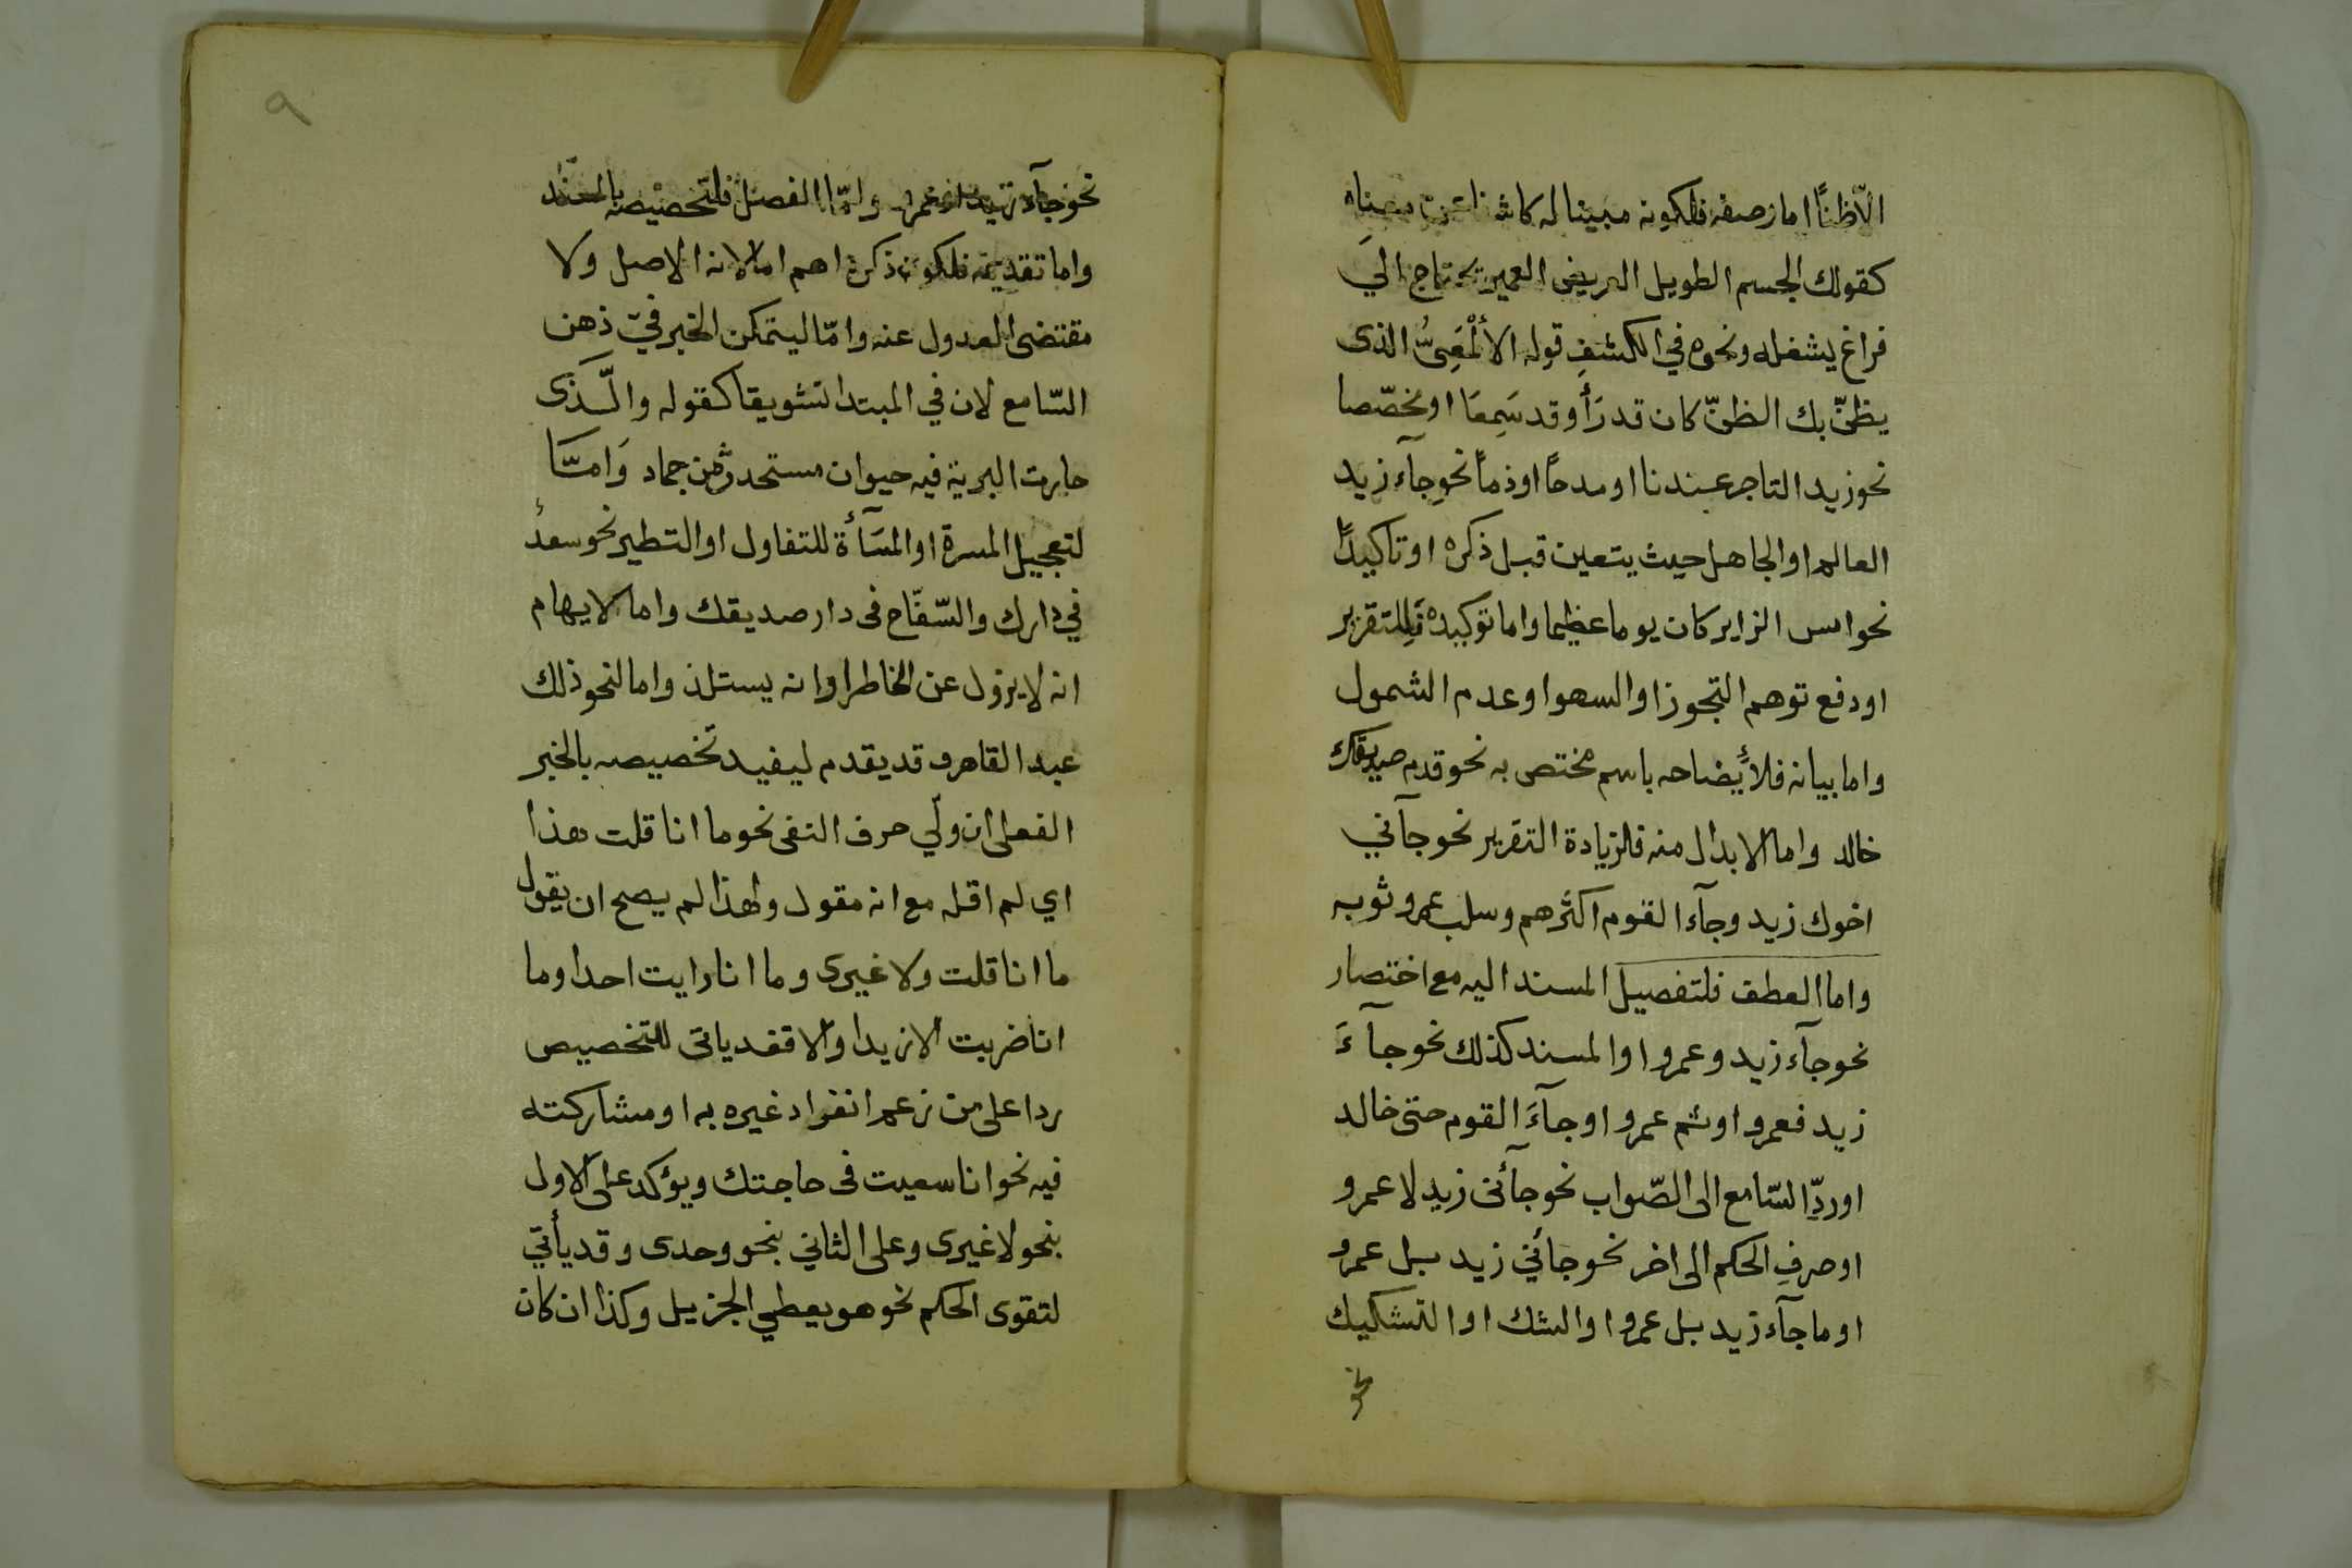 الّا ظنًا اما وصفه فلكونه مبينا له كاشفا عن معناه
كقولك الجسم الطويل العريض العميق يحتاج الي
فراغ يشغله ونحوه في الكشف قوله الألْمَعِىُّ الذى
يظنّ بك الظنّ كان قد رَأ وقد سَمِعَا او مخصّصا
نحو زيد التاجر عندنا او مدحاً او ذماً نحو جآء زيد
العالم او الجاهل حيث يتعين قبل ذكره او تاكيداً
نحو امس الزاير كان يوما عظيما واما توكيده فللتقرير
او دفع توهم التجوز او السهو او عدم الشمول
واما بيانه فلأيضاحه باسم مختص به نحو قدم صديقك
خالد واما الابدال منه فلزيادة التقرير نحو جآني
اخوك زيد وجآء القوم اكثرهم وسلب عمرو ثوبه
واما العطف فلتفصيل المسند اليه مع اختصار
نحو جآء زيد وعمرو او المسند كذلك نحو جآءَ
زيد فعمرو او ثم عمرو او جآءَ القوم حتى خالد
او ردِّ السّامع الى الصّواب نحو جآئنى زيد لا عمرو
او صرفِ الحكم الى اخر نحو جائني زيد بل عمرو
او ما جآء زيد بل عمرو او الشك او التشكيك
نحو
٩
نحو جآء زيد او عمرو وامّا الفصل فلتخصيصه بالمسند
واما تقديمه فلكون ذكره اهم اما لانه الاصل ولا
مقتضى العدول عنه وامّا ليتمكن الخبر في ذهن
السّامع لان في المبتدا تشويقا كقوله والَّذى
حارت البرية فيه حيوان مستحدث من جماد وَامَّا
لتعجيل المسرة او المسَآءة للتفاول او التطير نحو سعد
في دارك والسّفّاح فى دار صديقك واما لايهام
انه لا يزول عن الخاطر او انه يستلذ واما لنحو ذلك
عبد القاهر و قد يقدم ليفيد تخصيصه بالخبر
الفعلى ان ولّي حرف النفى نحو ما انا قلت هذا
اي لم اقله مع انه مقول ولهذا لم يصح ان يقول
ما انا قلت ولا غيرى وما انا رايت احدا وما
انا ضربت الا زيدا والا فقد ياتى للتخصيص
ردا على من زعم انفراد غيره به او مشاركته
فيه نحو انا سعيت فى حاجتك ويؤكد على الاول
بنحو لا غيرى وعلى الثاني بنحو وحدى وقد يأتي
لتقوى الحكم نحو هو يعطي الجزيل وكذا ان كان